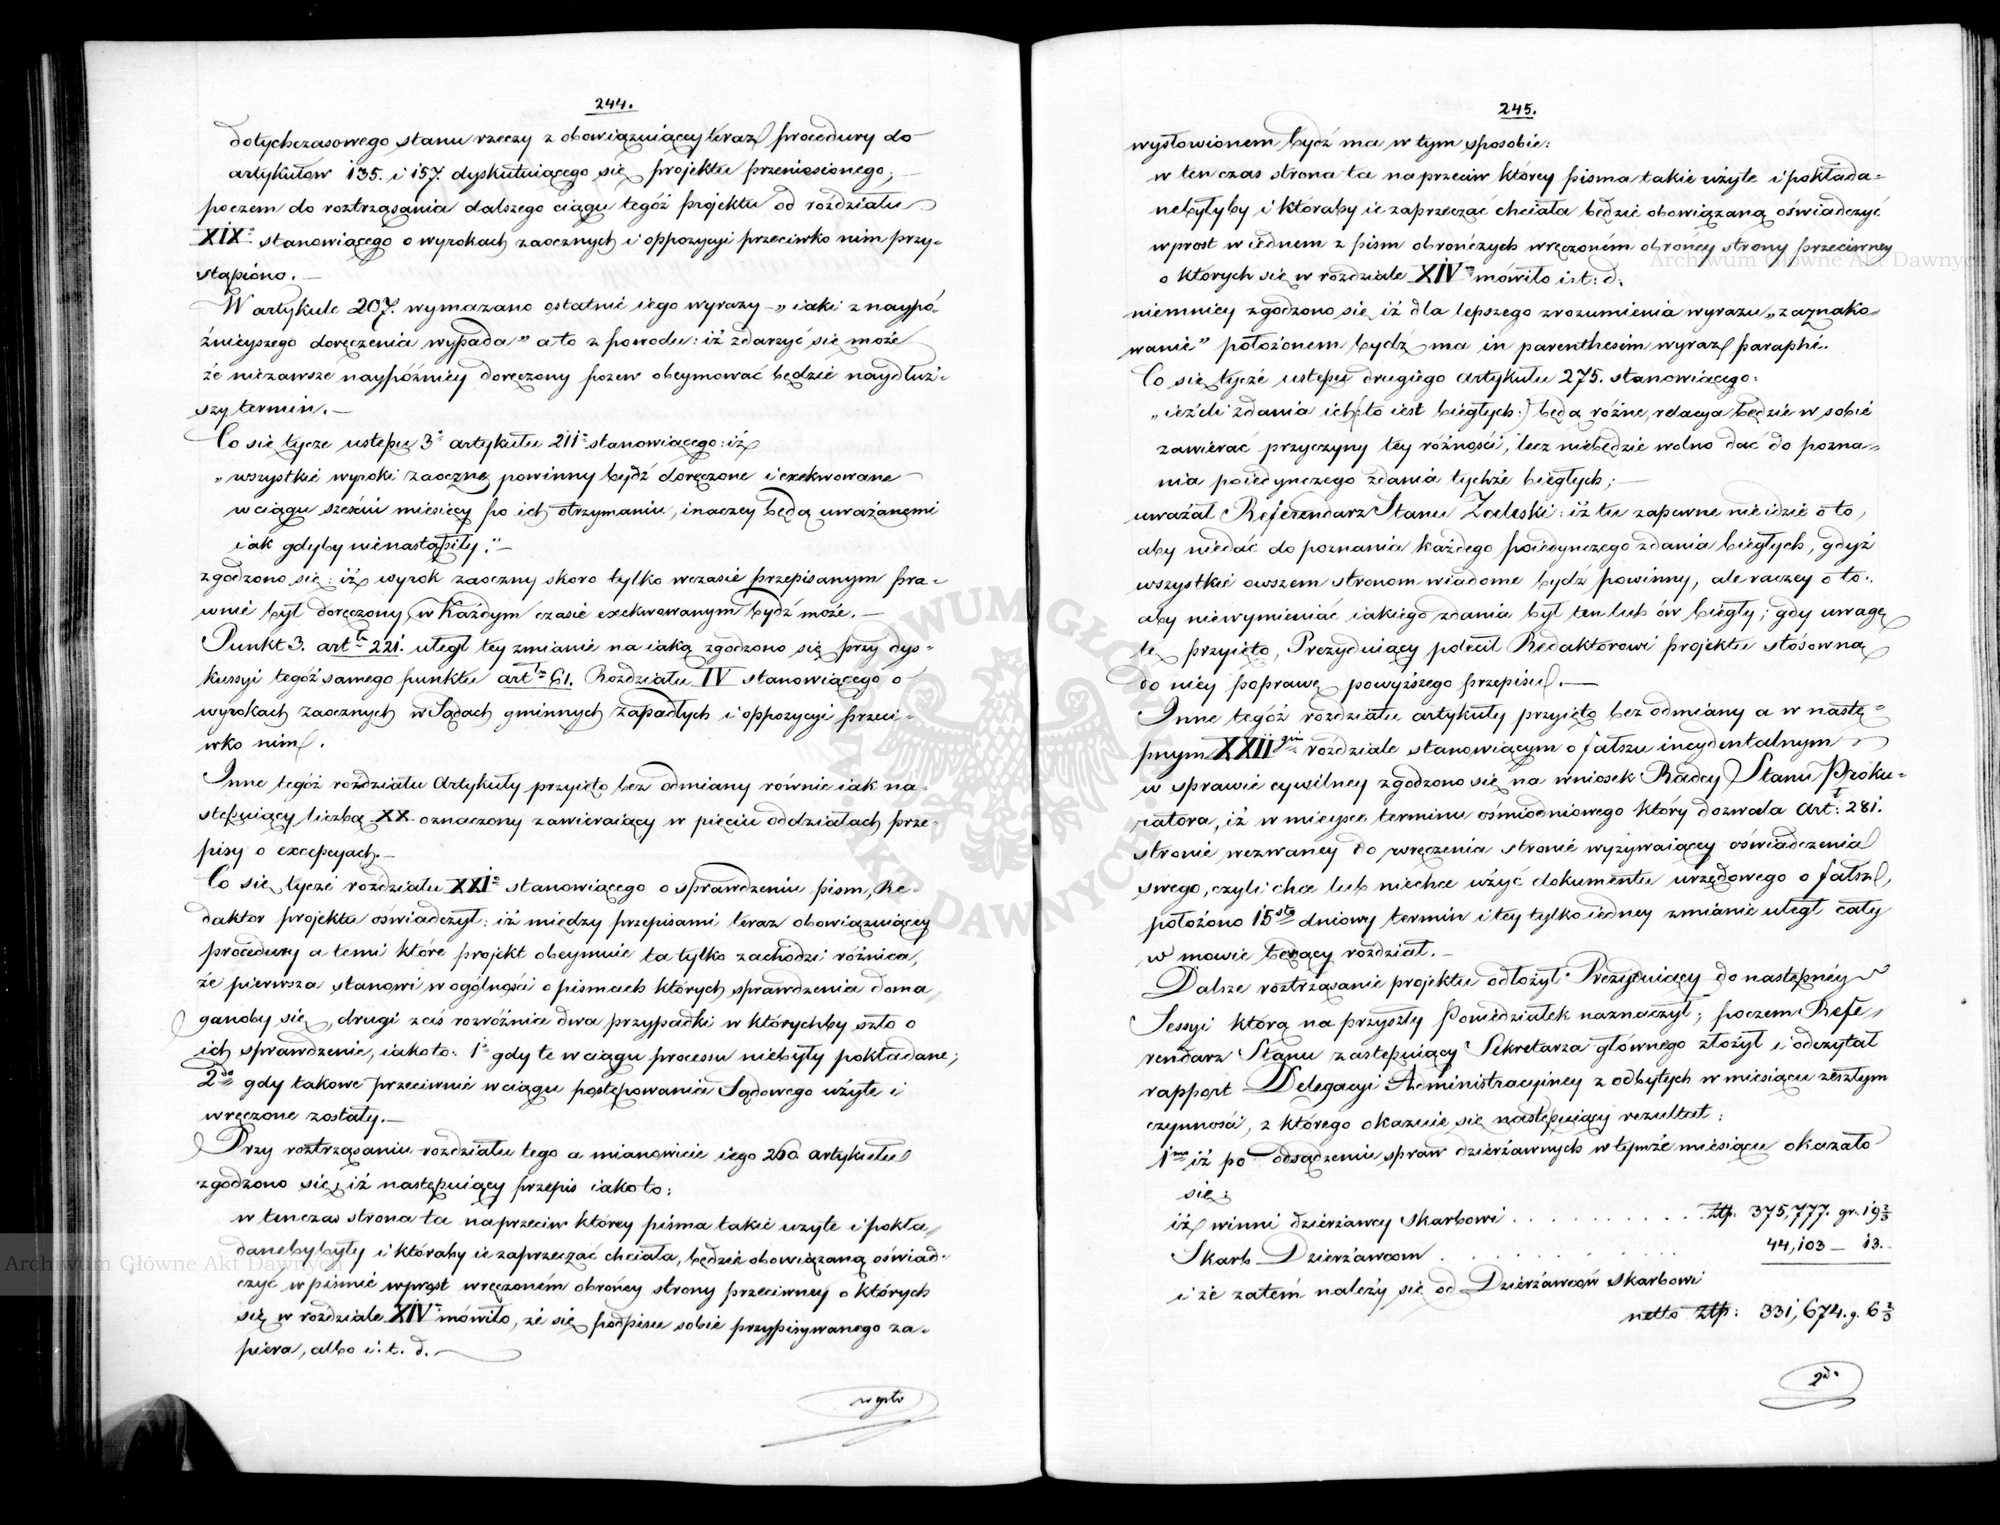 244.
dotychczasowego stanu rzeczy z obowiązuiącey teraz procedury do
artykułów 135. i 157. dyskutuiącego się projektu przeniesionego;
poczem do roztrząsania dalszego ciągu tegóż projektu od rozdziału
XIX° stanowiącego o wyrokach zaocznych i oppozycyi przeciwko nim przy-
stąpiono.—
W artykule 207. wymazano ostatnie iego wyrazy – „iaki z naypó-
źnieyszego doręczenia wypada” a to z powodu: iż zdarzyć się może
że niezawsze naypóźniey doręczony pozew obeymować będzie naydłuż-
szy termin.—
Co się tycze ustępu 3° artykułu 211° stanowiącego: iż
„wszystkie wyroki zaoczne, powinny bydź doręczone i exekwowane
w ciągu sześciu miesięcy po ich otrzymaniu, inaczey będą uważanemi
iak gdyby nienastąpiły.”—
zgodzono się: iż wyrok zaoczny skoro tylko wczasie przepisanym pra-
wnie był doręczony, w każdym czasie exekwowanym bydź może.—
Punkt 3. artłu 221. uległ tey zmianie na iaką zgodzono się przy dys-
kussyi tegóż samego punktu artłu 61. Rozdziału IV stanowiącego o
wyrokach zaocznych w Sądach gminnych zapadłych i oppozycyi przeci-
wko nim.
Inne tegóż rozdziału Artykuły przyięto bez odmiany równie iak na-
stępuiący liczbą XX oznaczony zawieraiący w pięciu oddziałach prze-
pisy o excepcyach.—
Co się tycze rozdziału XXI° stanowiącego o sprawdzeniu pism, Re-
daktor projektu oświadczył: iż między przepisami teraz obowiązuiącey
procedury a temi które projekt obeymuie ta tylko zachodzi różnica,
że pierwsza stanowi w ogólności o pismach których sprawdzenia doma-
ganoby się, drugi zaś rozróżnia dwa przypadki w którychby szło o
ich sprawdzenie, iako to: 1° gdy te w ciągu processu niebyły pokładane;
2do gdy takowe przeciwnie w ciągu postępowania Sądowego użyte i
wręczone zostały.—
Przy roztrząsaniu rozdziału tego a mianowicie iego 260 artykułu
zgodzono się, iż następuiący przepis iako to:
w tenczas strona ta naprzeciw którey pisma takie użyte i pokła-
danebybyły i któraby ie zaprzeczać chciała, będzie obowiązaną oświad-
czyć w piśmie wprost wręczoném obrońcy strony przeciwney o których
się w rozdziale XIV° mówiło, że się podpisu sobie przypisywanego za-
piera, albo i: t. d.
wysło
245.
wysłowionem bydź ma w tym sposobie:
w ten czas strona ta naprzeciw którey pisma takie użyte i pokłada-
nebyłyby i któraby ie zaprzeczać chciała będzie obowiązaną oświadczyć
wprost w iednem z pism obrończych wręczoném obrońcy strony przeciwney
o których się w rozdziale XIVm mówiło i: t: d.
niemniey zgodzono się iż dla lepszego zrozumienia wyrazu „zaznako-
wanie” położonem bydź ma in parenthesim wyraz paraphé.
Co się tycze ustępu drugiego artykułu 275. stanowiącego:
„ieżeli zdania ich (:to iest biegłych:) będą różne, relacya będzie w sobie
zawierać przyczyny tey różności, lecz niebędzie wolno dać do pozna-
nia poiedynczego zdania tychże biegłych;—
uważał Referendarz Stanu Zaleski: iż tu zapewne nieidzie o to,
aby niedać do poznania każdego poiedynczego zdania biegłych, gdyż
wszystkie owszem stronom wiadome bydź powinny, ale raczey o to
aby niewymieniać iakiego zdania był ten lub ów biegły; gdy uwagę
tę przyięto, Prezyduiący polecił Redaktorowi projektu stosowną
do niey poprawę powyższego przepisu.—
Inne tegóż rozdziału artykuły przyięto bez odmiany a w nastę-
pnym XXIIgim rozdziale stanowiącym o fałszu incydentalnym
w sprawie cywilney zgodzono się na wniosek Radcy Stanu Proku-
ratora, iż w mieysce terminu ośmiodniowego który dozwala Art: 281.
stronie wezwaney do wręczenia stronie wyzywaiącey oświadczenia
swego, czyli chce lub niechce użyć dokumentu urzędowego o fałsz,
położono 15sto dniowy termin i tey tylko iedney zmianie uległ cały
w mowie będący rozdział.—
Dalsze roztrząsanie projektu odłożył Prezyduiący do następnéy
Sessyi którą na przyszły Poniedziałek naznaczył; poczem Refe-
rendarz Stanu zastępuiący Sekretarza głównego złożył i odczytał
rapport Delegacyi Administracyiney z odbytych w miesiącu zeszłym
czynności, z którego okazuie się następuiący rezultat:
1mo iż po odsądzeniu spraw dzierżawnych w tymże miesiącu okazało
się:
iż winni dzierżawcy Skarbowi . . . . . . . . . . złp. 375,777. gr. 19 2/3
Skarb Dzierżawcom . . . . . . . . . . 44,103 — 13.
i że zatém należy się od Dzierżawców Skarbowi
netto złp: 331,674. g. 6 2/3
2do
Archiwum Główne Akt Dawnych
Archiwum Główne Akt Dawnych
ARCHIWUM GŁÓWNE AKT DAWNYCH